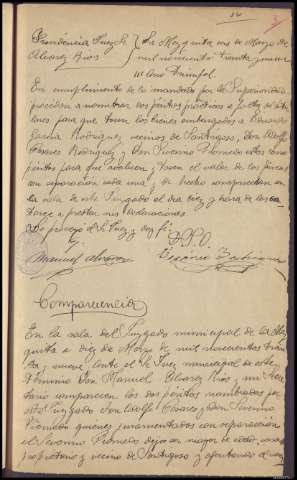 Providencia Juez Sr.
Alvarez Rios
La Mezquita una de Marzo de
mil novecientos treinta y nueve
III Año Triunfal
En cumplimiento de lo mandado por la Superioridad
procedase a nombrar dos péritos prácticos
para que tasen los bienes embargados a
García Rodriguez vecinos de Santigoso, Don Adolfo
Cesares Rodriguez y Don Severino Pioneda estos como
péritos para que evaluen y tasen el valor de las fincas
con separación cada una y de hecho comparezcan en
la sala de este Juzgado el día diez y hora de las ca-
torce a prestar sus declaraciones.
Lo proveyó el Sr. Juez y doy fé.
D.S.O.
Manuel Alvarez
Comparecencia
En la sala del Juzgado municipal de La Mez-
quita a diez de Marzo de mil novecientos trein-
ta y nueve, ante el Sr. Juez municipal de este
término Don Manuel Alvarez Rios y mi Secre-
tario comparecen los dos péritos nombrados por
este Juzgado Don Adolfo Cesares y Don Severino
Pioneda quienes juramentados con separación
el Severino Pioneda dijo ser mayor de edad,
propietario y vecino de Santigoso y